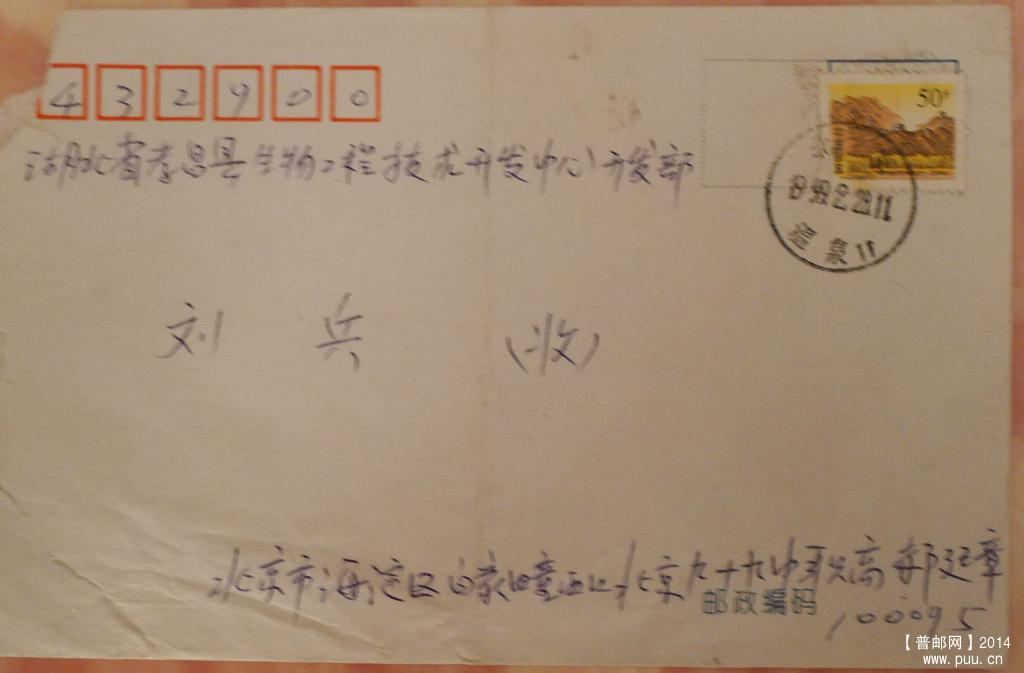 432900
湖北省孝昌县生物工程技术开发中心开发部
50分
99.2.28.11
温泉11
刘 兵 (收)
北京市海淀区白家疃西北京九十九中职高郝廷章
邮政编码
100095
【普邮网】2014
www.puu.cn